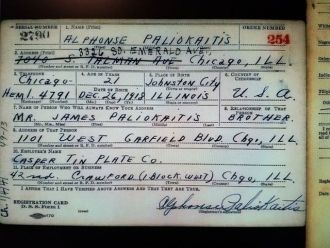 SERIAL NUMBER 1. NAME (Print) ORDER NUMBER
2790 ALPHONSE PALIOKAITIS 254
3326 SO. EMERALD AVE,
2. ADDRESS (Print)
TALMAN AVE CHICAGO, ILL.
3. TELEPHONE 4. AGE IN YEARS 5. PLACE OF BIRTH 6. COUNTRY OF CITIZENSHIP
Chicago 21 Johnston City
HEM 1. 4791 DEC. 26, 1918 ILLINOIS U. S. A.
7. NAME OF PERSON WHO WILL ALWAYS KNOW YOUR ADDRESS 8. RELATIONSHIP OF THAT PERSON
MR. JAMES PALIOKAITIS BROTHER.
9. ADDRESS OF THAT PERSON
1101 WEST GARFIELD BLVD. Chgo, ILL
10. EMPLOYER'S NAME
CASPER TIN PLATE CO.
11. PLACE OF EMPLOYMENT OR BUSINESS
42nd CRAWFORD (1 BLOCK WEST) Chgo, ILL
I AFFIRM THAT I HAVE VERIFIED ABOVE ANSWERS AND THAT THEY ARE TRUE.
REGISTRATION CARD
D. S. S. Form 1
Alphonse Paliokaitis